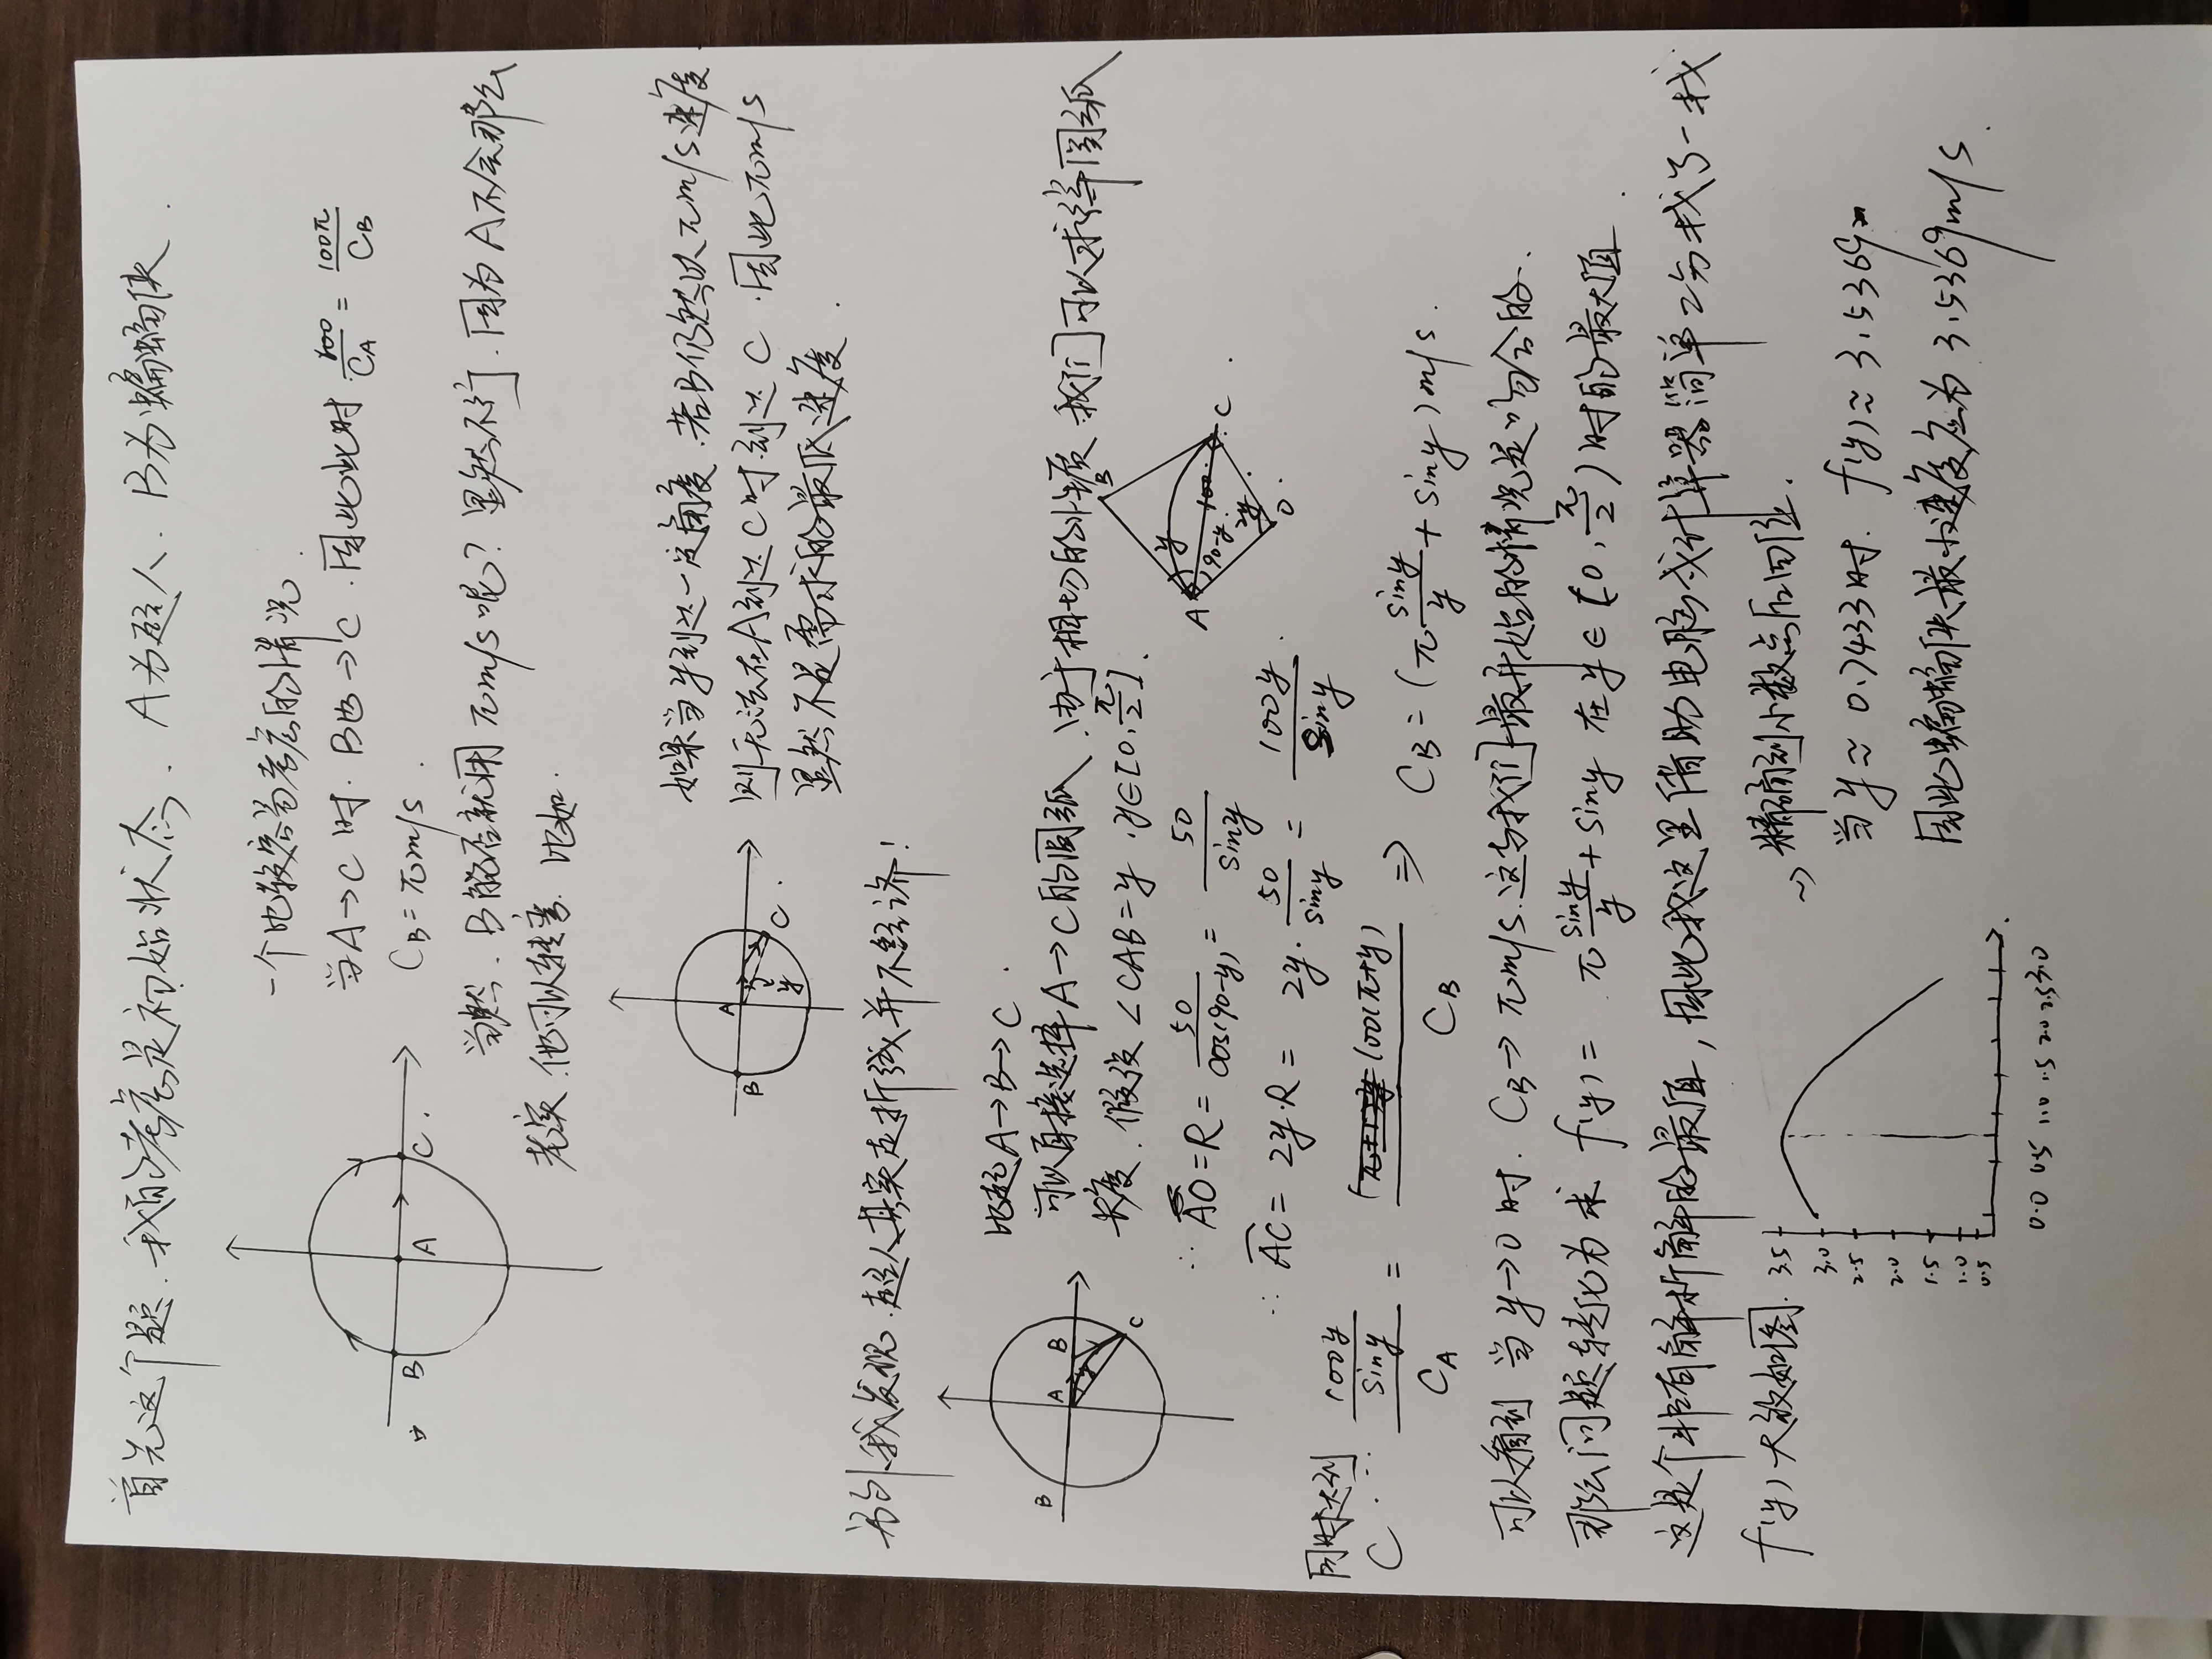 首先这个题、我的考虑是初始状态、A为超人、B为蝙蝠侠.
一个比较容易考虑的情况.
当A→C时. B也→C. 因此此时 100/C_A = 100π/C_B
B A C.
C_B = πm/s.
当然、B能否就用πm/s呢? 显然不行. 因为A不会那么
老实.他可以转弯. 比如.
如果当y到达一定角度.若B仍然以πm/s速度.
B A y C.
则无法在A到达C时.到达C.因此πm/s
显然不是需求的最低速度.
另外我发现.超人其实走折线并不经济!
比起A→B→C.
B A B y C
可以直接选择A→C的圆弧.由于相切的性质 我们可以求得圆弧
长度. 假设∠CAB=y, y∈[0, π/2].
B A y 90-y. 100. 2y. C. O.
∴ AO=R= 50/cos(90-y) = 50/siny
∴ AC= 2y·R= 2y· 50/siny = 100y/siny.
同时达到
C. ∴ (100y/siny)/C_A = 100(π+y)/C_B ⇒ C_B = (π siny/y + siny)m/s.
可以看到 当y→0时. C_B→πm/s.这与我们最开始的情况是吻合的.
那么问题转化为求 f(y)= π siny/y + siny 在y∈[0, π/2)时的最大值.
这是个非有解析解的最值, 因此我这里借助电脑或计算器简单二分找了一找
f(y)大致如图. 3.5
3.0
2.5
2.0
1.5
1.0
0.5
0.0 0.5 1.0 1.5 2.0 2.5 3.0
~> 精确到小数点后四位.
当y≈0.7433时. f(y)≈3.5369
因此蝙蝠侠最小速度应为3.5369m/s.